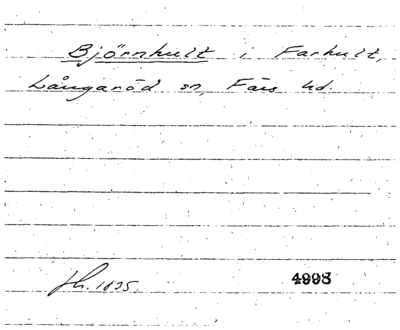 Björnhult i Farhult,
Långaröd sn, Färs hd.
Jh. 1835.
4993